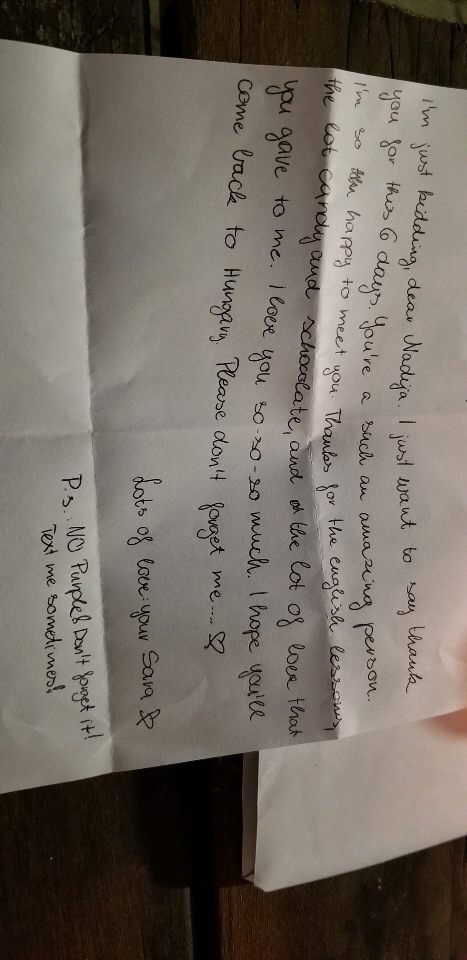 I'm just kidding, dear Nadija. I just want to say thank
you for this 6 days. You're a such an amazing person.
I'm so happy to meet you. Thanks for the english lessons,
the lot candy and schocolate, and the lot of love that
you gave to me. I love you so-so-so much. I hope you'll
come back to Hungary. Please don't forget me....
Lots of love: your Sara
P.s.: NO Purple! Don't forget it!
Text me sometimes!